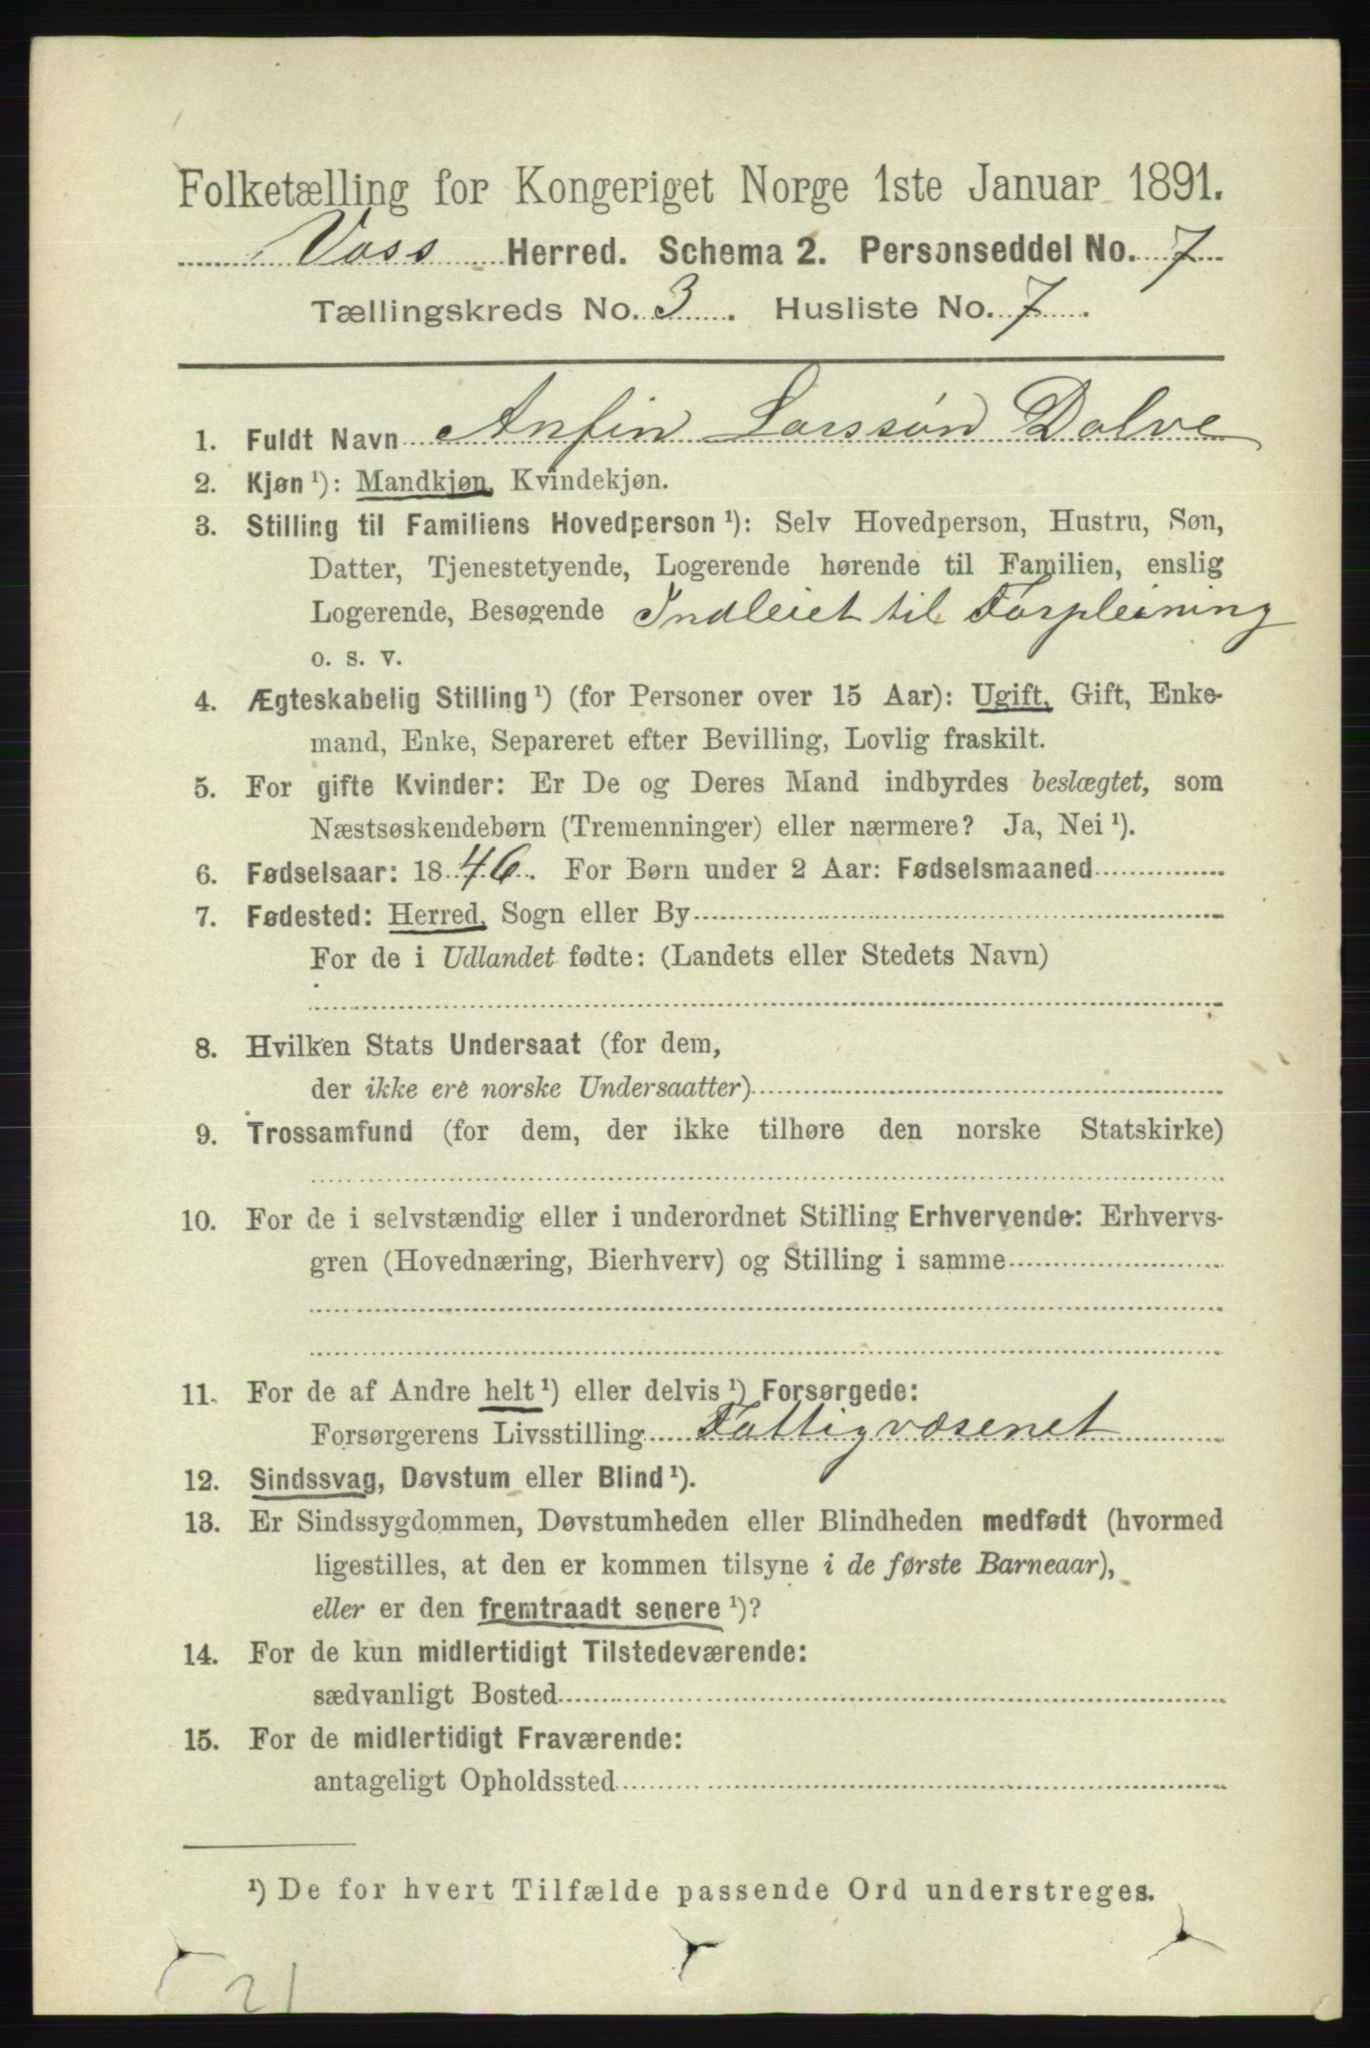 Folketælling for Kongeriget Norge 1ste Januar 1891.
Voss Herred. Schema 2. Personseddel No. 7
Tællingskreds No. 3. Husliste No. 7.
1. Fuldt Navn Anfin Larssøn Dolve
2. Kjøn ¹): Mandkjøn, Kvindekjøn.
3. Stilling til Familiens Hovedperson ¹): Selv Hovedperson, Hustru, Søn,
Datter, Tjenestetyende, Logerende hørende til Familien, enslig
Logerende, Besøgende Indleiet til Forpleining
o. s. v.
4. Ægteskabelig Stilling ¹) (for Personer over 15 Aar): Ugift, Gift, Enke-
mand, Enke, Separeret efter Bevilling, Lovlig fraskilt.
5. For gifte Kvinder: Er De og Deres Mand indbyrdes beslægtet, som
Næstsøskendebørn (Tremenninger) eller nærmere? Ja, Nei ¹).
6. Fødselsaar: 1846. For Børn under 2 Aar: Fødselsmaaned
7. Fødested: Herred, Sogn eller By
For de i Udlandet fødte: (Landets eller Stedets Navn)
8. Hvilken Stats Undersaat (for dem,
der ikke ere norske Undersaatter)
9. Trossamfund (for dem, der ikke tilhøre den norske Statskirke)
10. For de i selvstændig eller i underordnet Stilling Erhvervende: Erhvervs-
gren (Hovednæring, Bierhverv) og Stilling i samme
11. For de af Andre helt ¹) eller delvis ¹) Forsørgede:
Forsørgerens Livsstilling Fattigvæsenet
12. Sindssvag, Døvstum eller Blind ¹).
13. Er Sindssygdommen, Døvstumheden eller Blindheden medfødt (hvormed
ligestilles, at den er kommen tilsyne i de første Barneaar),
eller er den fremtraadt senere ¹)?
14. For de kun midlertidigt Tilstedeværende:
sædvanligt Bosted
15. For de midlertidigt Fraværende:
antageligt Opholdssted
¹) De for hvert Tilfælde passende Ord understreges.
21